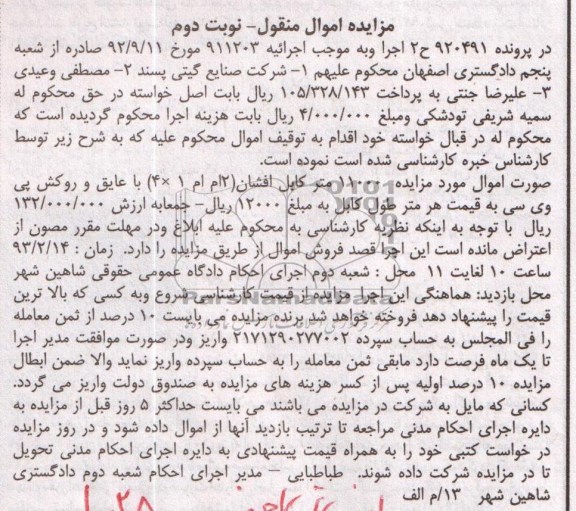 مزایده اموال منقول- نوبت دوم
در پرونده ۹۲۰۴۹۱ ح۲ اجرا وبه موجب اجرائیه ۹۱۱۲۰۳ مورخ ۹۲/۹/۱۱ صادره از شعبه
پنجم دادگستری اصفهان محکوم علیهم ۱- شرکت صنایع گیتی پسند ۲- مصطفی وعیدی
۳- علیرضا جنتی به پرداخت ۱۰۵/۳۲۸/۱۴۳ ریال بابت اصل خواسته در حق محکوم له
سمیه شریفی تودشکی ومبلغ ۴/۰۰۰/۰۰۰ ریال بابت هزینه اجرا محکوم گردیده است که
محکوم له در قبال خواسته خود اقدام به توقیف اموال محکوم علیه که به شرح زیر توسط
کارشناس خبره کارشناسی شده است نموده است.
صورت اموال مورد مزایده ۱۱۰۰۰ متر کابل افشان(۲ام ام ۱ ×۴) با عایق و روکش پی
وی سی به قیمت هر متر طول کابل به مبلغ ۱۲۰۰۰ ریال- جمعابه ارزش ۱۳۲/۰۰۰/۰۰۰
ریال با توجه به اینکه نظریه کارشناسی به محکوم علیه ابلاغ ودر مهلت مقرر مصون از
اعتراض مانده است این اجرا قصد فروش اموال از طریق مزایده را دارد. زمان : ۹۳/۲/۱۴
ساعت ۱۰ لغایت ۱۱ محل : شعبه دوم اجرای احکام دادگاه عمومی حقوقی شاهین شهر
محل بازدید: هماهنگی این اجرا مزایده از قیمت کارشناسی شروع وبه کسی که بالا ترین
قیمت را پیشنهاد دهد فروخته خواهد شد برنده مزایده می بایست ۱۰ درصد از ثمن معامله
را فی المجلس به حساب سپرده ۲۱۷۱۲۹۰۲۷۷۰۰۲ واریز ودر صورت موافقت مدیر اجرا
تا یک ماه فرصت دارد مابقی ثمن معامله را به حساب سپرده واریز نماید والا ضمن ابطال
مزایده ۱۰ درصد اولیه پس از کسر هزینه های مزایده به صندوق دولت واریز می گردد.
کسانی که مایل به شرکت در مزایده می باشند می بایست حداکثر ۵ روز قبل از مزایده به
دایره اجرای احکام مدنی مراجعه تا ترتیب بازدید آنها از اموال داده شود و در روز مزایده
در خواست کتبی خود را به همراه قیمت پیشنهادی به دایره اجرای احکام مدنی تحویل
تا در مزایده شرکت داده شوند. طباطبایی – مدیر اجرای احکام شعبه دوم دادگستری
شاهین شهر ۱۳/م الف